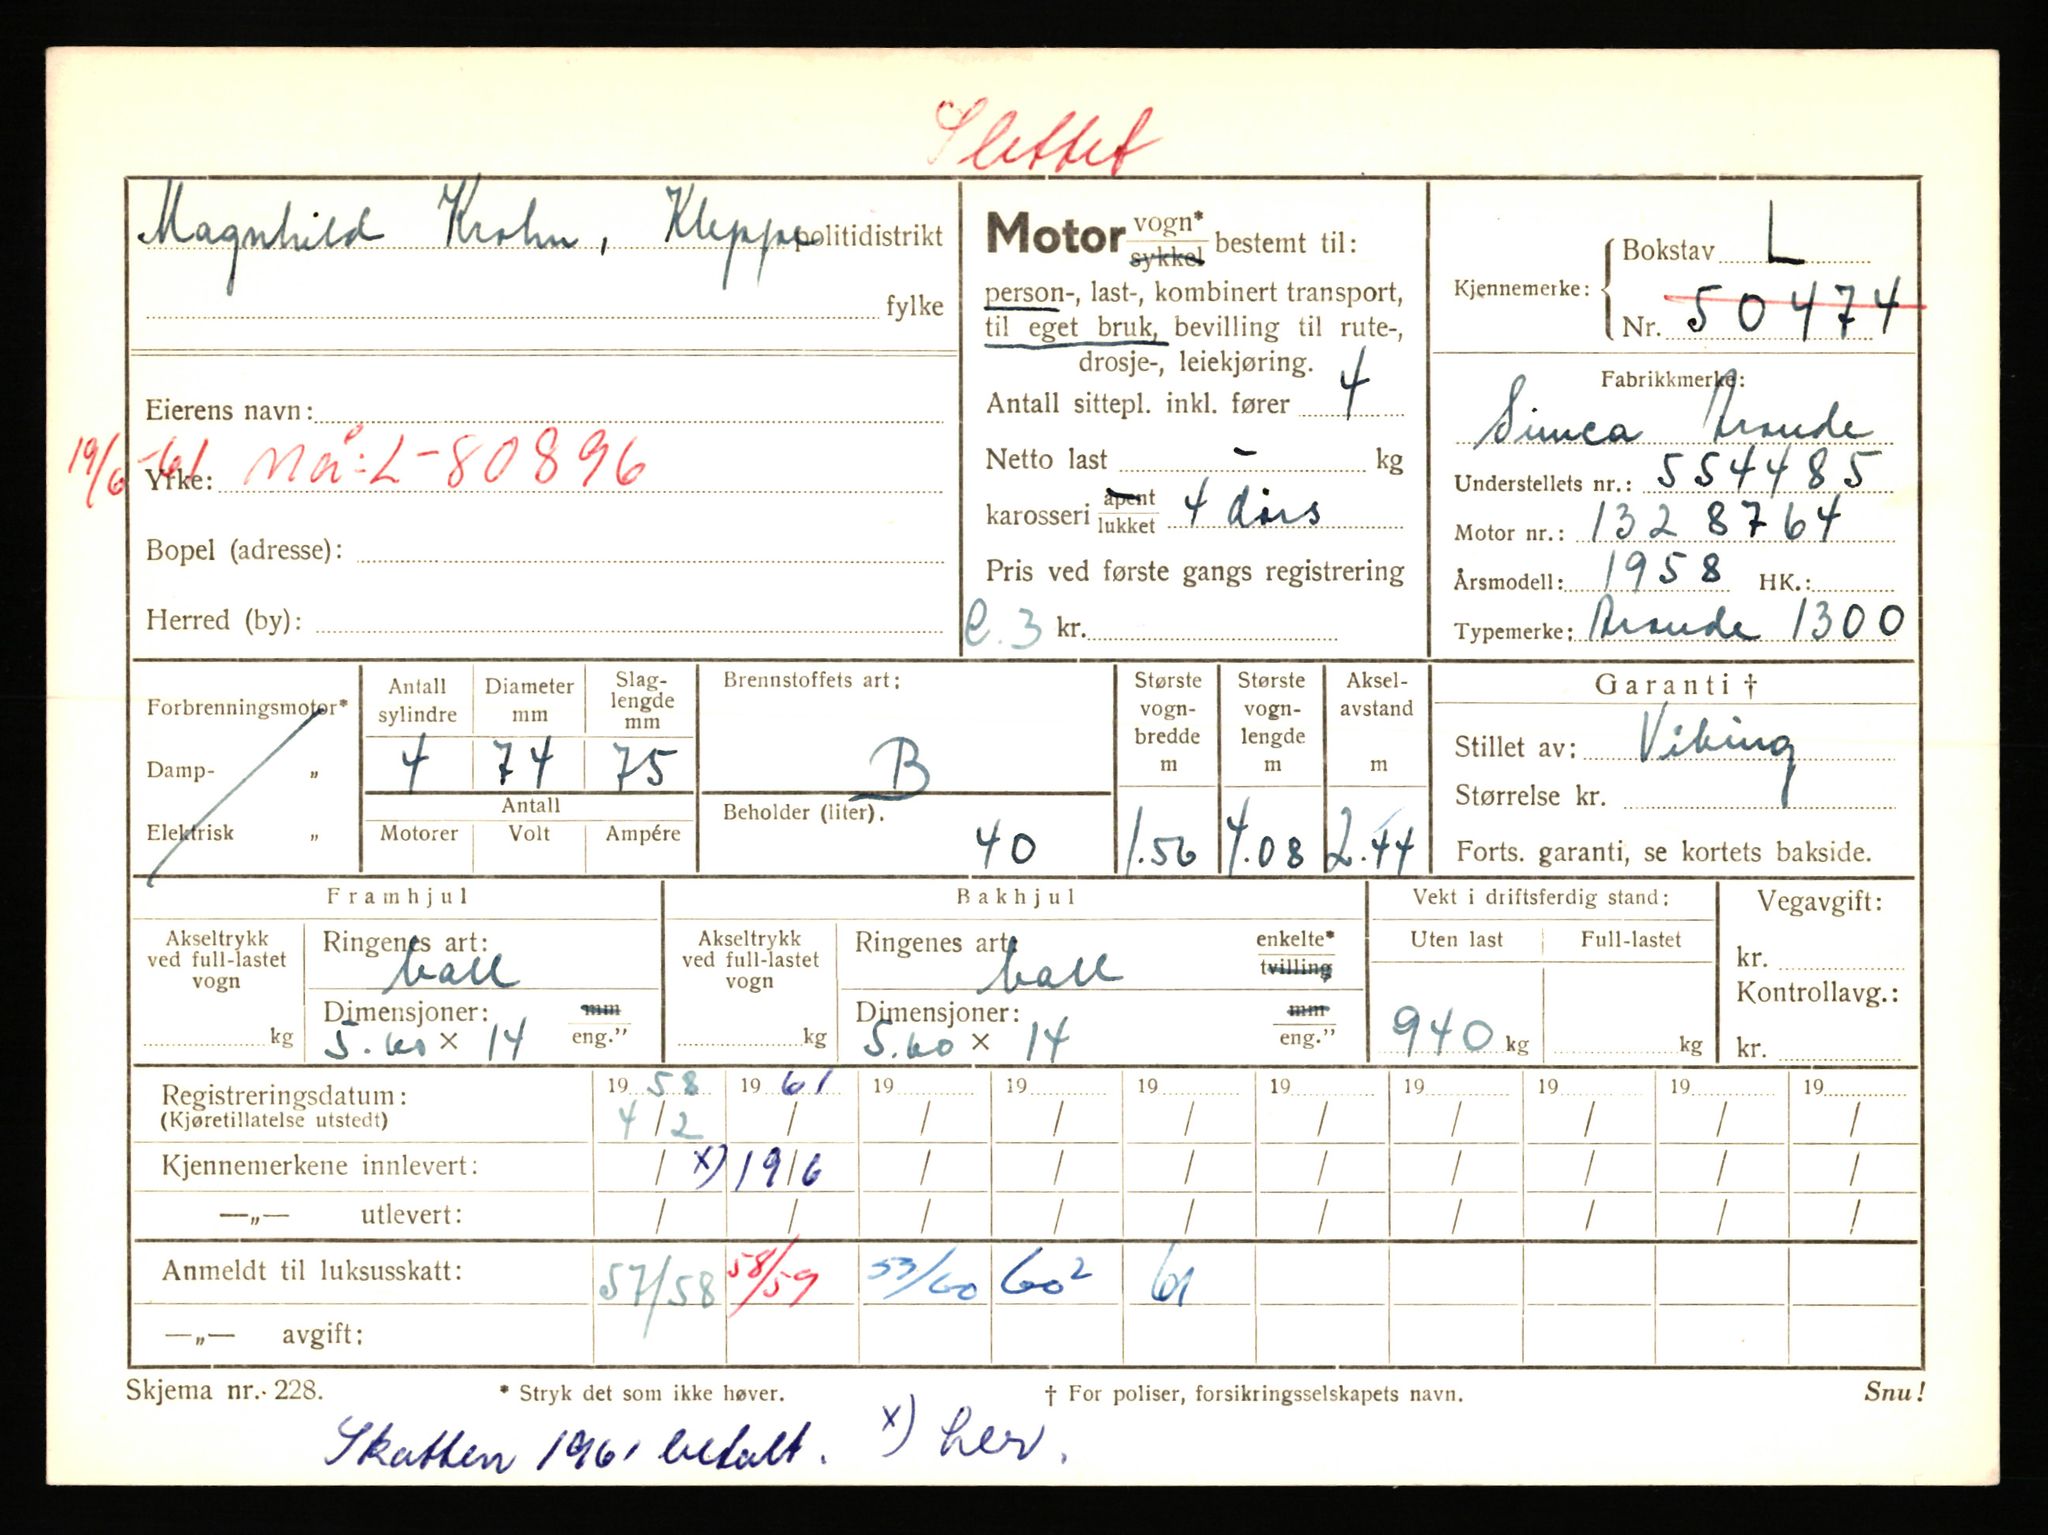 Slettet
Magnhild Krohn, Kleppe politidistrikt
fylke
Eierens navn:
19/6-61 Nå: L-80896
Yrke:
Bopel (adresse):
Herred (by):
Motor vogn* sykkel bestemt til:
person-, last-, kombinert transport,
til eget bruk, bevilling til rute-,
drosje-, leiekjøring.
Antall sittepl. inkl. fører 4
Netto last - kg
karosseri åpent lukket 4 dørs
Pris ved første gangs registrering
e.3 kr.
Kjennemerke: Bokstav L
Nr. 50474
Fabrikkmerke:
Simca Aronde
Understellets nr.: 554485
Motor nr.: 1328764
Årsmodell: 1958 HK.:
Typemerke: Aronde 1300
Forbrenningsmotor*
Damp- „
Elektrisk „
Antall sylindre Diameter mm Slag-lengde mm
4 74 75
Antall
Motorer Volt Ampére
Brennstoffets art:
B
Beholder (liter).
40
Største vogn-bredde m
1.56
Største vogn-lengde m
4.08
Aksel-avstand m
2.44
Garanti †
Stillet av: Viking
Størrelse kr.
Forts. garanti, se kortets bakside.
Framhjul
Akseltrykk ved full-lastet vogn
kg
Ringenes art:
ball
Dimensjoner: mm
5.60 × 14 eng.”
Bakhjul
Akseltrykk ved full-lastet vogn
kg
Ringenes art: enkelte*
ball tvilling
Dimensjoner: mm
5.60 × 14 eng.”
Vekt i driftsferdig stand:
Uten last Full-lastet
940 kg kg
Vegavgift:
kr.
Kontrollavg.:
kr.
Registreringsdatum: 19 58 19 61 19 19 19 19 19 19 19 19
(Kjøretillatelse utstedt) 4/2 / / / / / / / / /
Kjennemerkene innlevert: / x) 19/6 / / / / / / / /
—„— utlevert: / / / / / / / / / /
Anmeldt til luksusskatt: 57/58 58/59 53/60 60² 61
—„— avgift:
Skjema nr. 228. * Stryk det som ikke høver. † For poliser, forsikringsselskapets navn. Snu!
Skatten 1961 betalt. x) her.